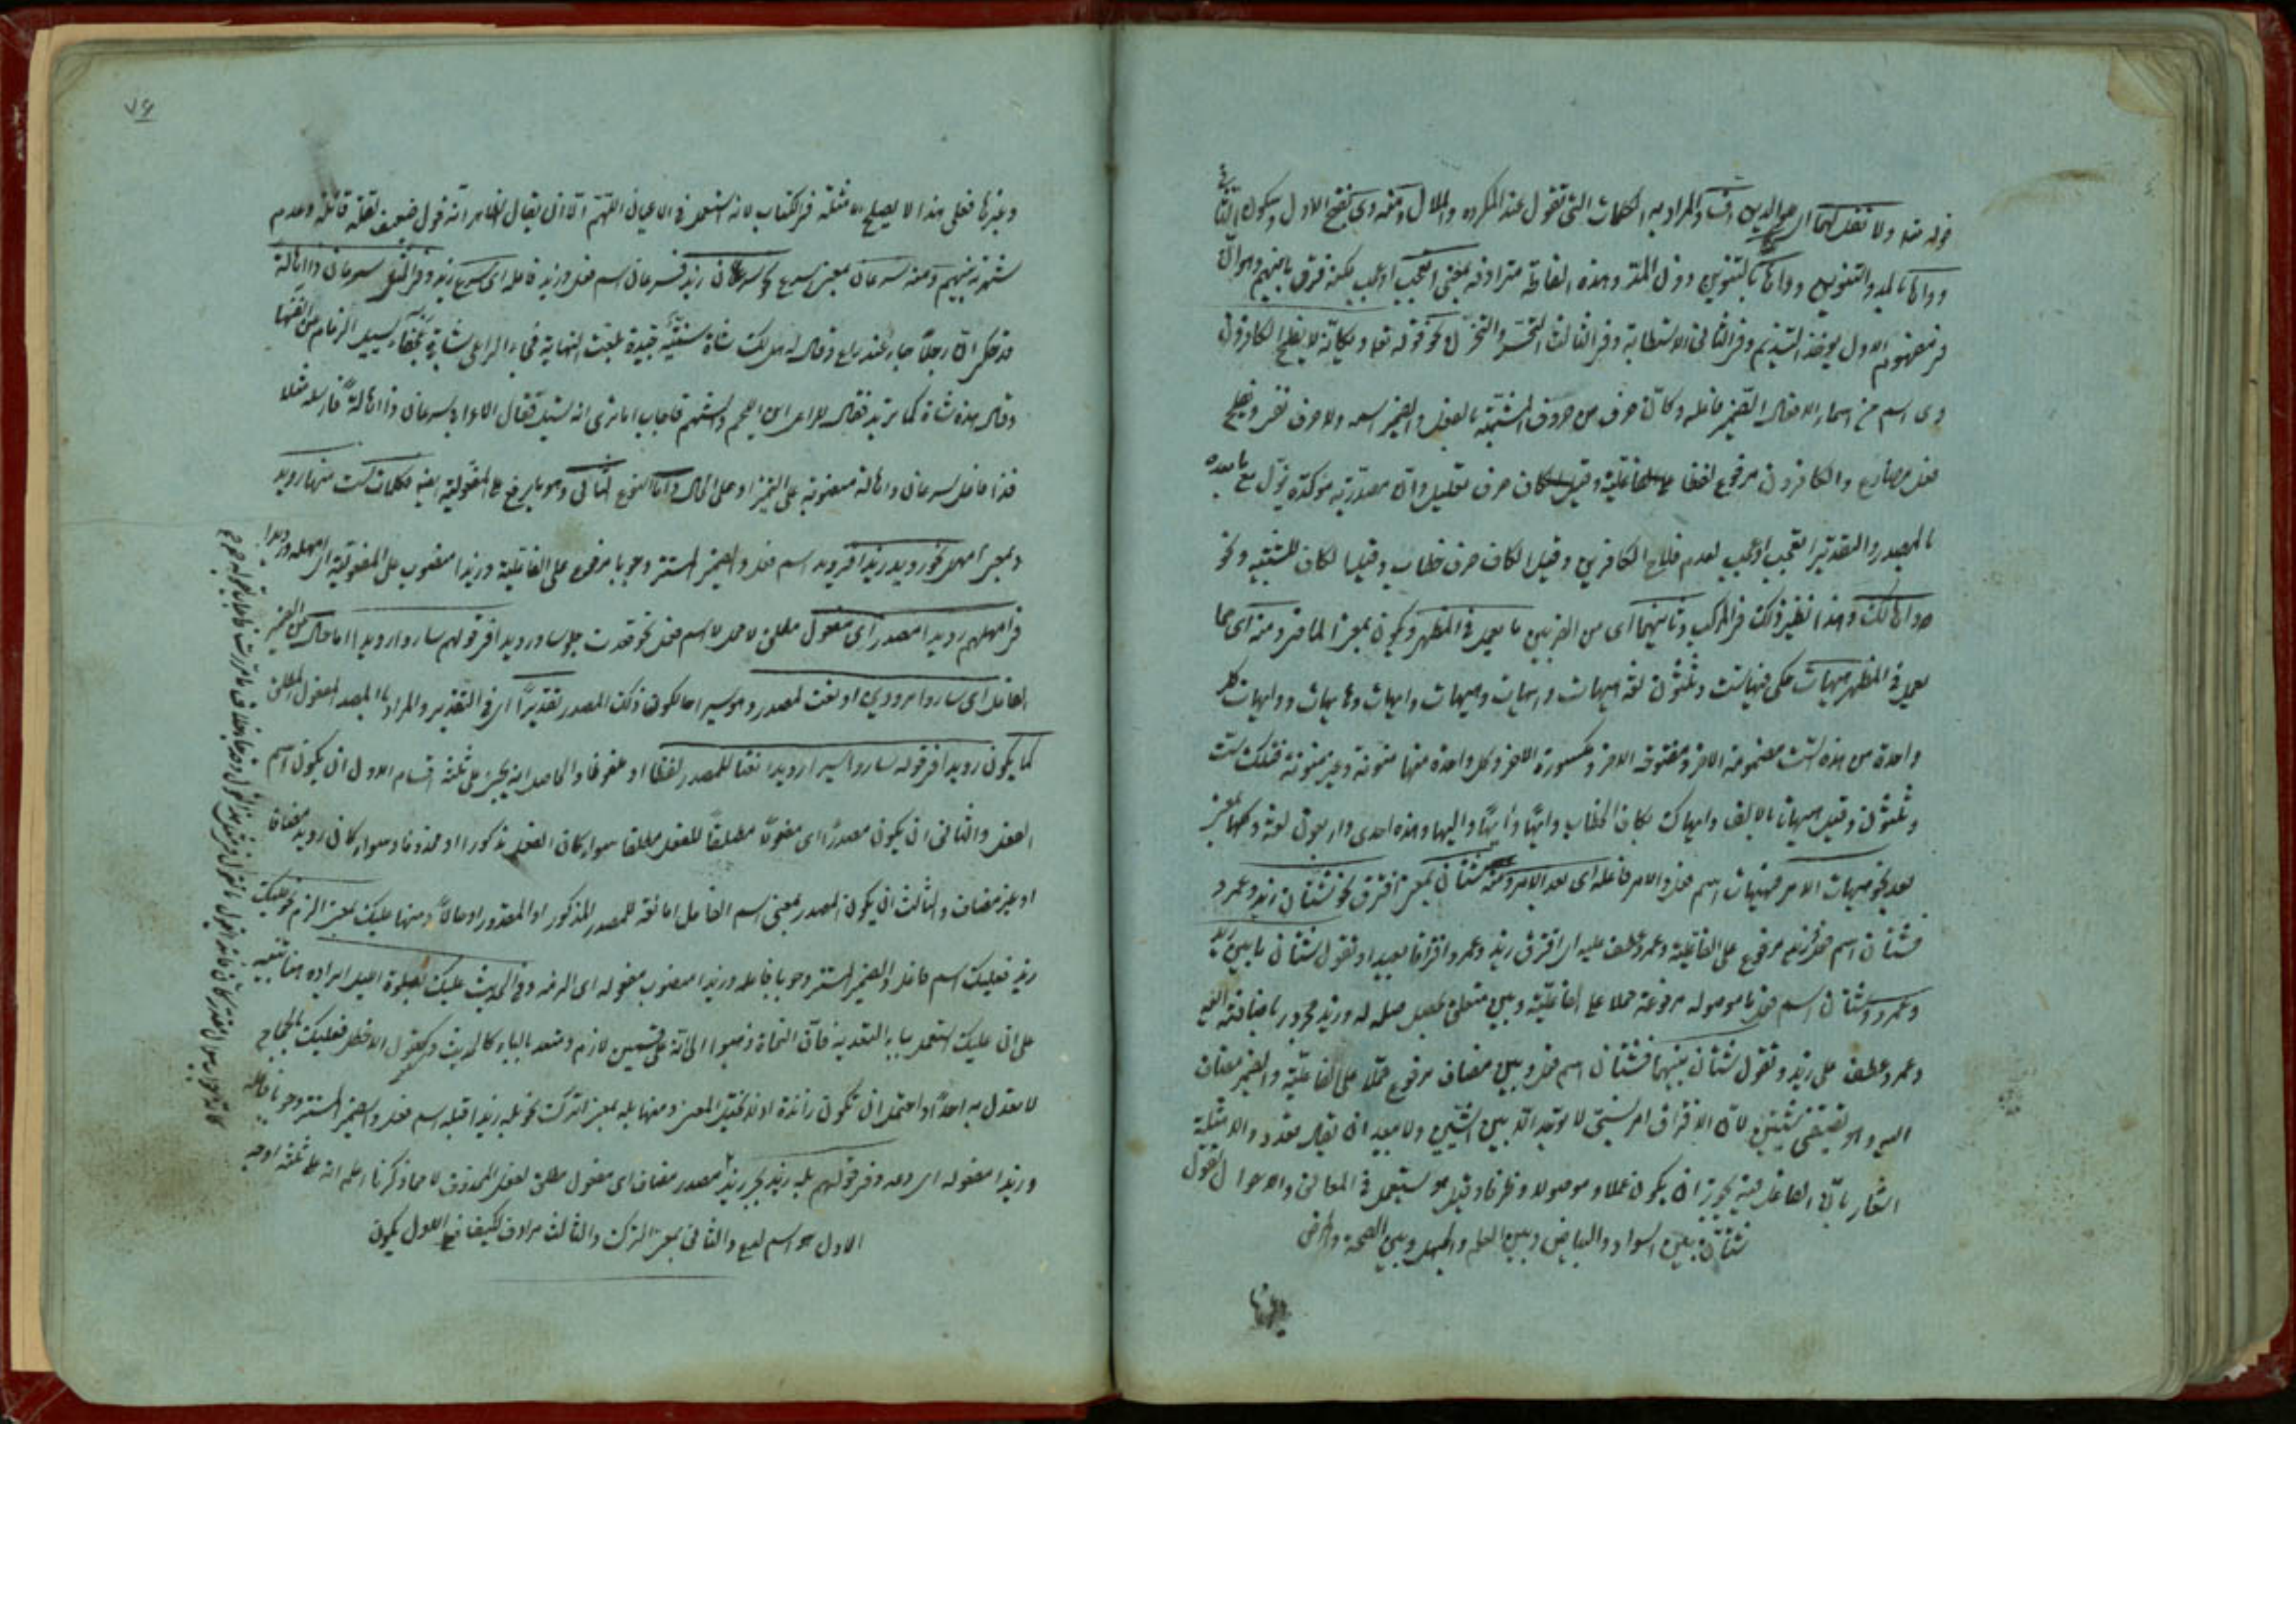 قوله تعه ولا تقل لهما اى للوالدين اف والمراد به الكلمات التى تقول عند المكروه والملال ومنه وى بفتح الاول وسكون الثانى
وواها بالمد والتنوين وواها بالتنوين دون المد وهذه الثلثة مترادفة بمعنى اتعجب او اعجب لكنه فرق بينهم وهو ان
فى مفهوم الاول يؤخذ التنديم وفى الثانى الاستطابة وفى الثالث التحسر والتحزن نحو قوله تعه ويكانه لا يفلح الكافرون
وى اسم من اسماء الافعال الضمير فاعله وكان حرف من حروف المشبهة بالفعل والضمير اسمه ولا حرف نفى ويفلح
فعل مضارع والكافرون مرفوع لفظا على الفاعلية وقيل الكاف حرف تعليل وان مصدرية مؤكدة يؤل مع ما بعده
بالمصدر والتقدير اتعجب او اعجب لعدم فلاح الكافرين وقيل الكاف حرف خطاب وقيل الكاف للتنبيه ونحو
واها لك وهذا نظير ذلك فى المركب وثانيهما اى من الضربين ما يعمل فى المظهر ويكون بمعنى الماضى ومنه اى مما
يعمل فى المظهر هيهات حكى فيها ست وثلثون لغة هيهات وايهات وهيهات وايهات وهايهات وايهات كل
واحدة من هذه الست مضمومة الاخر ومفتوحة الاخر ومكسورة الاخر وكل واحدة منها منونة وغير منونة فتلك ست
وثلثون وقيل هيهات بالالف وايهاك بكاف الخطاب وايها وايها واليها وهذه احدى واربعون لغة وكلها بمعنى
بعد نحو هيهات الامر فهيهات اسم فعل والامر فاعله اى بعد الامر ومنه شتان بمعنى افترق نحو شتان زيد وعمرو
فشتان اسم فعل زيد مرفوع على الفاعلية وعمرو عطف عليه اى افترق زيد وعمرو افتراقا بعيدا وتقول شتان ما بين زيد
وعمرو وشتان اسم فعل ما موصولة مرفوعة محلا على الفاعلية وبين متعلق بحصل صلة له وزيد مجرور باضافته اليه
وعمرو عطف على زيد وتقول شتان بينهما فشتان اسم فعل وبين مضاف مرفوع محلا على الفاعلية والضمير مضاف
اليه وهو يقتضى شيئين لان الافتراق امر نسبى لا يوجد الا بين الشيئين ولا بعيد ان يقال تعدد الامثلة
اشعار بان الفاعل فيه يجوز ان يكون علما وموصولا وظرفا وقيل هو يستعمل فى المعانى والاحوال تقول
شتان بين السواد والبياض وبين العلم والجهل وبين الصحة والمرض
وغيرها
٧٦
وغيرها فعلى هذا لا يصلح الامثلة فى الكتاب لانه استعمل فى الاعيان اللهم الا ان يقال الظاهر انه قول ضعيف لقلة قائله وعدم
شهرته بينهم ومنه سرعان بمعنى سرع نحو سرعان زيد فسرعان اسم فعل وزيد فاعله اى سرع زيد وفى المثل سرعان ذا اهالة
قد حكى ان رجلا جاء عند راع وقال له هل لك شاة سمينة جيدة بلغت النهاية فجاء الراعى بشاة عجفاء يسيل الرغام من انفها
وقال هذه شاة كما تريد فقال للراعى اين اللحم والشحم فاجاب اما ترى انه يسيل فقال الاعرابى سرعان ذا اهالة فارسله مثلا
فذا فاعل لسرعان واهالة منصوبة على التميز او على الحال واما النوع الثانى وهو ما يرفع على المفعولية ايضه فكلمات ست منها رويد
وبمعنى امهل نحو رويد زيدا فرويد اسم فعل والضمير المستتر وجوبا مرفوع على الفاعلية وزيدا منصوب على المفعولية اى امهله ورويدا
فى امهلهم رويدا مصدر اى مفعول مطلق لامهل لا اسم فعل نحو قعدت جلوسا ورويدا فى قولهم ساروا رويدا اما حال من الضمير
الفاعل اى ساروا مرودين او نعت لمصدر وهو سيرا اما لكون ذلك المصدر تقديرا اى فى التقدير والمراد بالمصدر المفعول المطلق
كما يكون رويدا فى قوله ساروا سيرا رويدا نعتا للمصدر لفظا او ملفوظا والحاصل انه يجئ على ثلثة اقسام الاول ان يكون اسم
الفعل والثانى ان يكون مصدرا اى مفعولا مطلقا للفعل مطلقا سواء كان الفعل مذكورا او محذوفا وسواء كان رويد مضافا
او غير مضاف والثالث ان يكون المصدر بمعنى اسم الفاعل اما نعته للمصدر المذكور او المقدر او حالا ومنها عليك بمعنى الزم نحو عليك
زيدا فعليك اسم فاعل والضمير المستتر وجوبا فاعله وزيدا منصوب مفعوله اى الزمه وفى الحديث عليك بصلوة الليل ايراده هنا تنبيه
على ان عليك استعمل بباء التعدية فان النحاة ذهبوا الى انه على قسمين لازم ومتعد بالباء كالحديث وكقول الاخطل فعليك بالحجاج
لا تعدل به احدا واحتمل ان تكون زائدة او لتحقيق المعنى ومنها بله بمعنى اترك نحو بله زيدا فبله اسم فعل والضمير المستتر وجوبا فاعله
وزيدا مفعوله اى دعه وفى قولهم بله زيد بجر زيد مصدر مضاف اى مفعول مطلق لفعل المحذوف لا مما ذكرنا اعلم انه على ثلثة اوجه
الاول هو اسم لدع والثانى بمعنى الترك والثالث مرادف لكيف فعلى الاول يكون